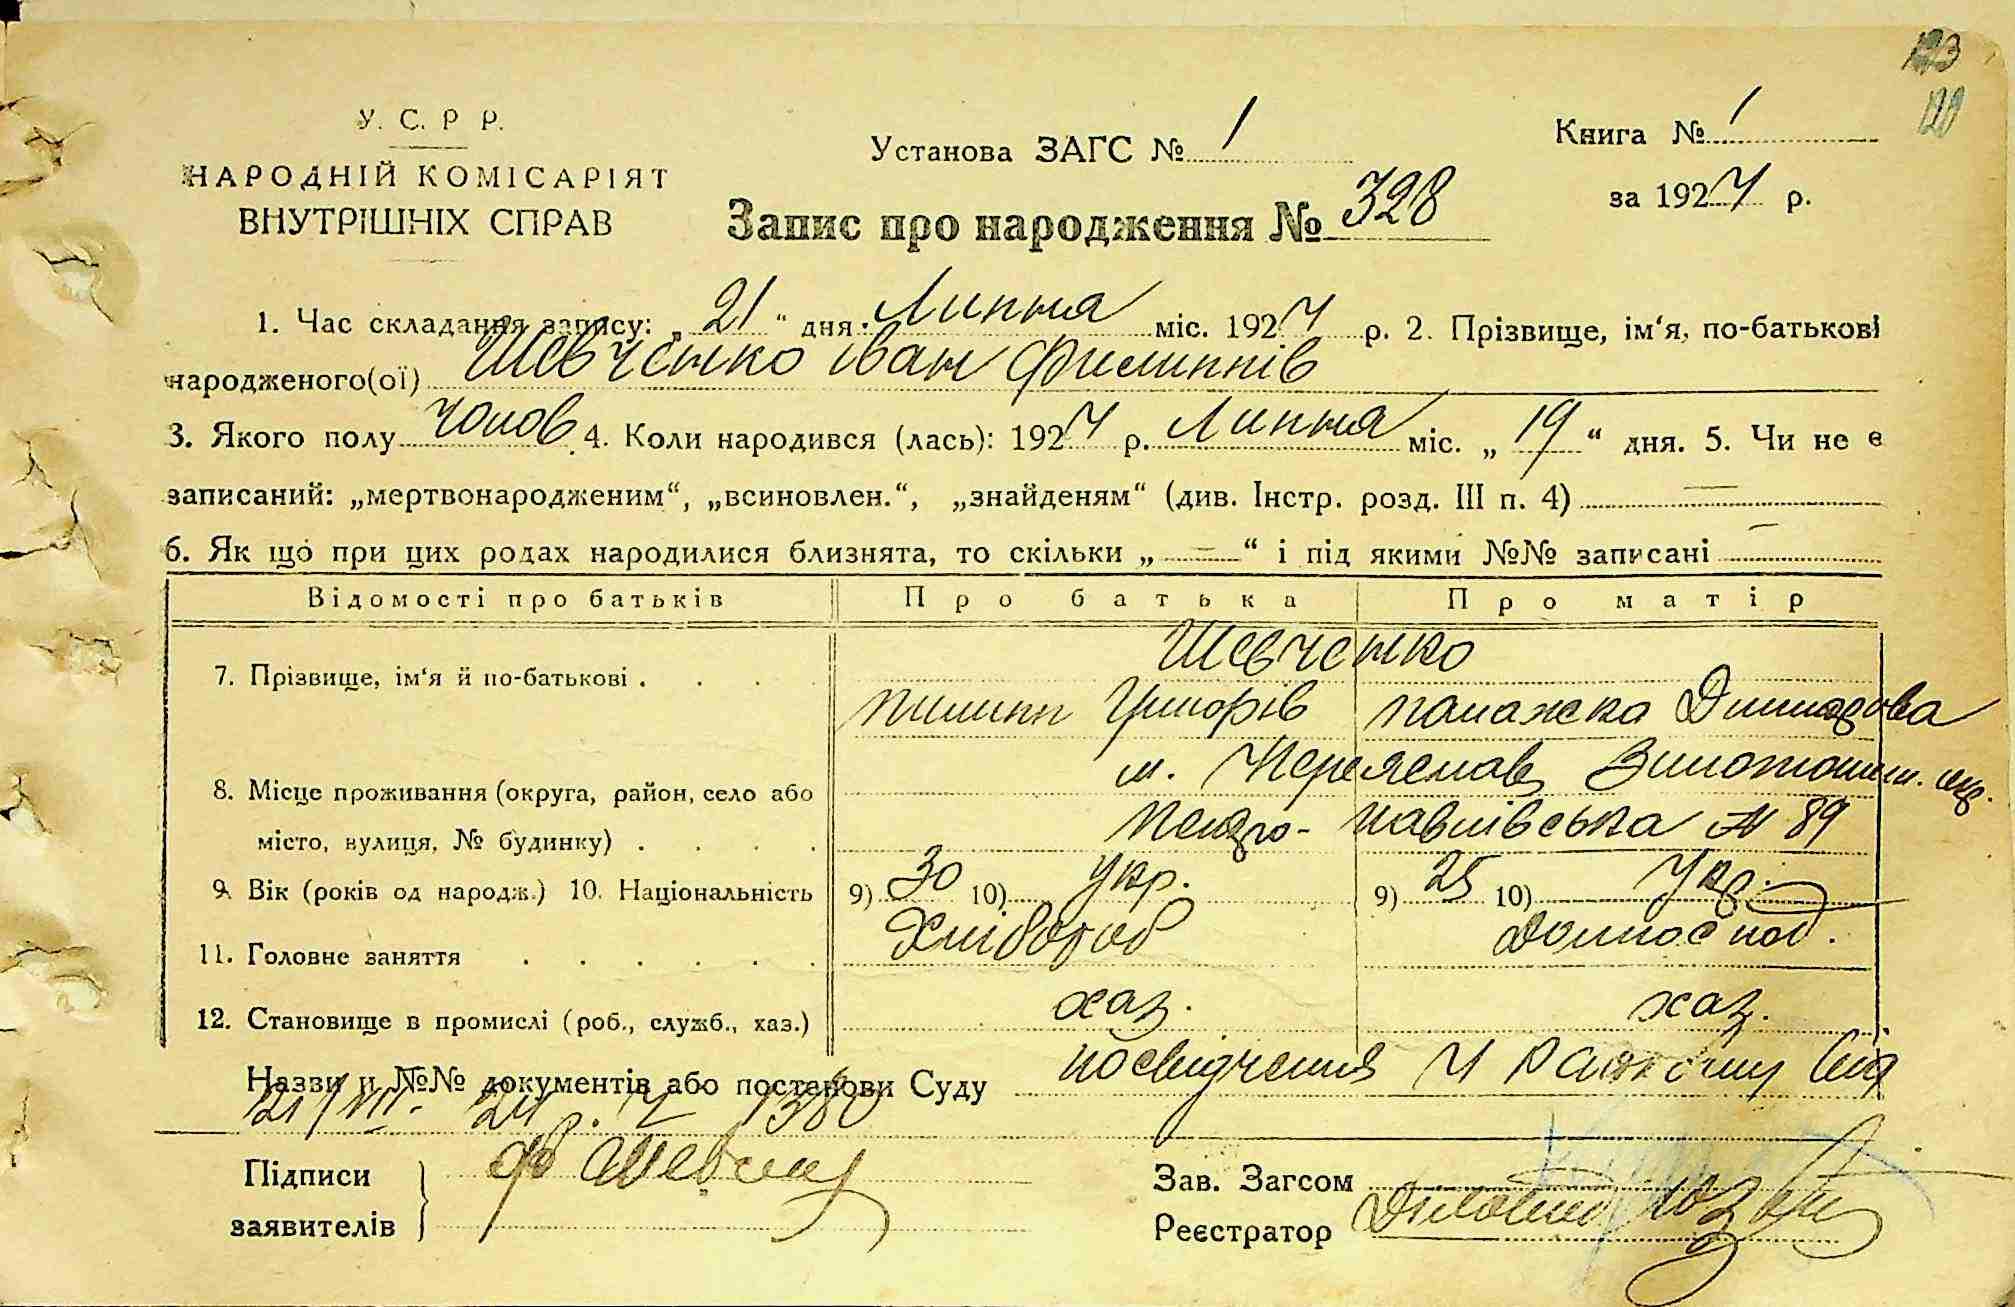 123
120
У. С. Р Р.
НАРОДНІЙ КОМІСАРІЯТ
ВНУТРІШНІХ СПРАВ
Установа ЗАГС № 1
Книга № 1
за 1924 р.
Запис про народження № 328
1. Час складання запису: „ 21 “ дня Липня міс. 1924 р. 2. Прізвище, ім‘я, по-батькові
народженого(ої) Шевченко Іван Филиппів
3. Якого полу чолов 4. Коли народився (лась): 1924 р. Липня міс. „ 19 “ дня. 5. Чи не є
записаний: „мертвонародженим“, „всиновлен.“, „знайденям“ (див. Інстр. розд. III п. 4) —
6. Як що при цих родах народилися близнята, то скільки „ — “ і під якими №№ записані —
Відомості про батьків Про батька Про матір
Шевченко
7. Прізвище, ім‘я й по-батькові . . . .
Пилипп Григорів Палажка
м. Переяслав Золотоніш. окр.
8. Місце проживання (округа, район, село або
місто, вулиця, № будинку) . . . . Петро-Павлівська № 89
9. Вік (років од народж.) 10. Національність 9) 30 10) Укр. 9) 25 10) Укр.
11. Головне заняття . . . . . . Хлібороб Домогоспод.
12. Становище в промислі (роб., служб., хаз.) хаз. хаз.
Назви и №№ документів або постанови Суду посвідчення
21/VII 24 р. Ч 1380
Підписи
заявителів
Зав. Загсом
Реєстратор